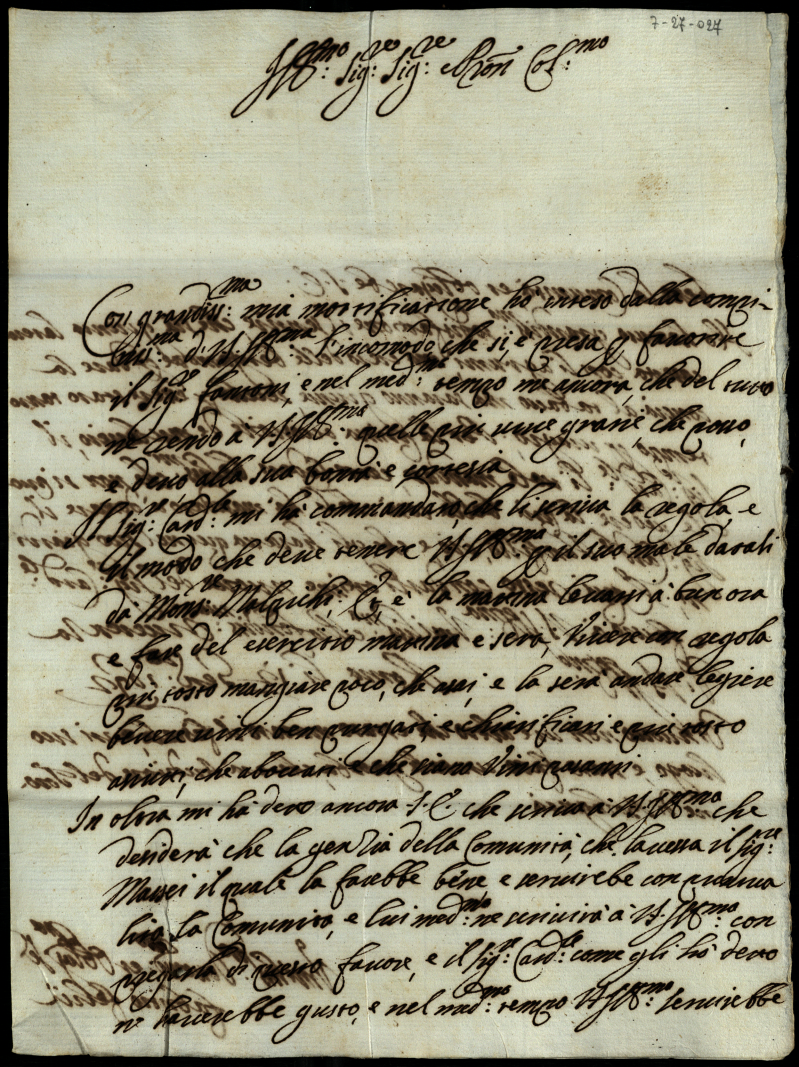 7-27-027
Ill:mo Sig:re Sig:re Pron Col:mo
Con grandiss:ma mia mortificatione ho inteso dalla compi-
tiss:ma di V.S.Ill:ma l'incomodo che si è presa p favorire
il Sig:re Fantoni, e nel med:mo tempo me ancora, che del tutto
ne rendo à V.S.Ill:ma quelle più vive gratie, che posso,
e devo alla sua bontà e cortesia
Il Sig:r Card:le mi hà commandato, che li scriva la regola, e
il modo che deve tenere V.S.Ill:ma p il suo male datali
da Mons:re Malpichi, e la matina levarsi à buon ora
e fare del esercitio matina e sera, Vivere con regola
più tosto mangiare poco, che assai, e la sera andare legiere
bevere vini ben purgati, e chiarificati e più tosto
asciuti, che aboccati e che siano Vini passanti
In oltra mi hà detto ancora S.E. che scriva à V.S.Ill:ma che
desidera che la gentia della Comunità, che lavessa il Sig:re
Massei il quale la farebbe bène, e servirebe con
la Comunità, e lui med:mo ne scriverà à V.S.Ill:ma con
pregarla di questo favore, e il Sig:r Card:le come gli hò detto
n' haverebbe gusto, e nel med:mo tempo V.S.Ill:ma servirebbe